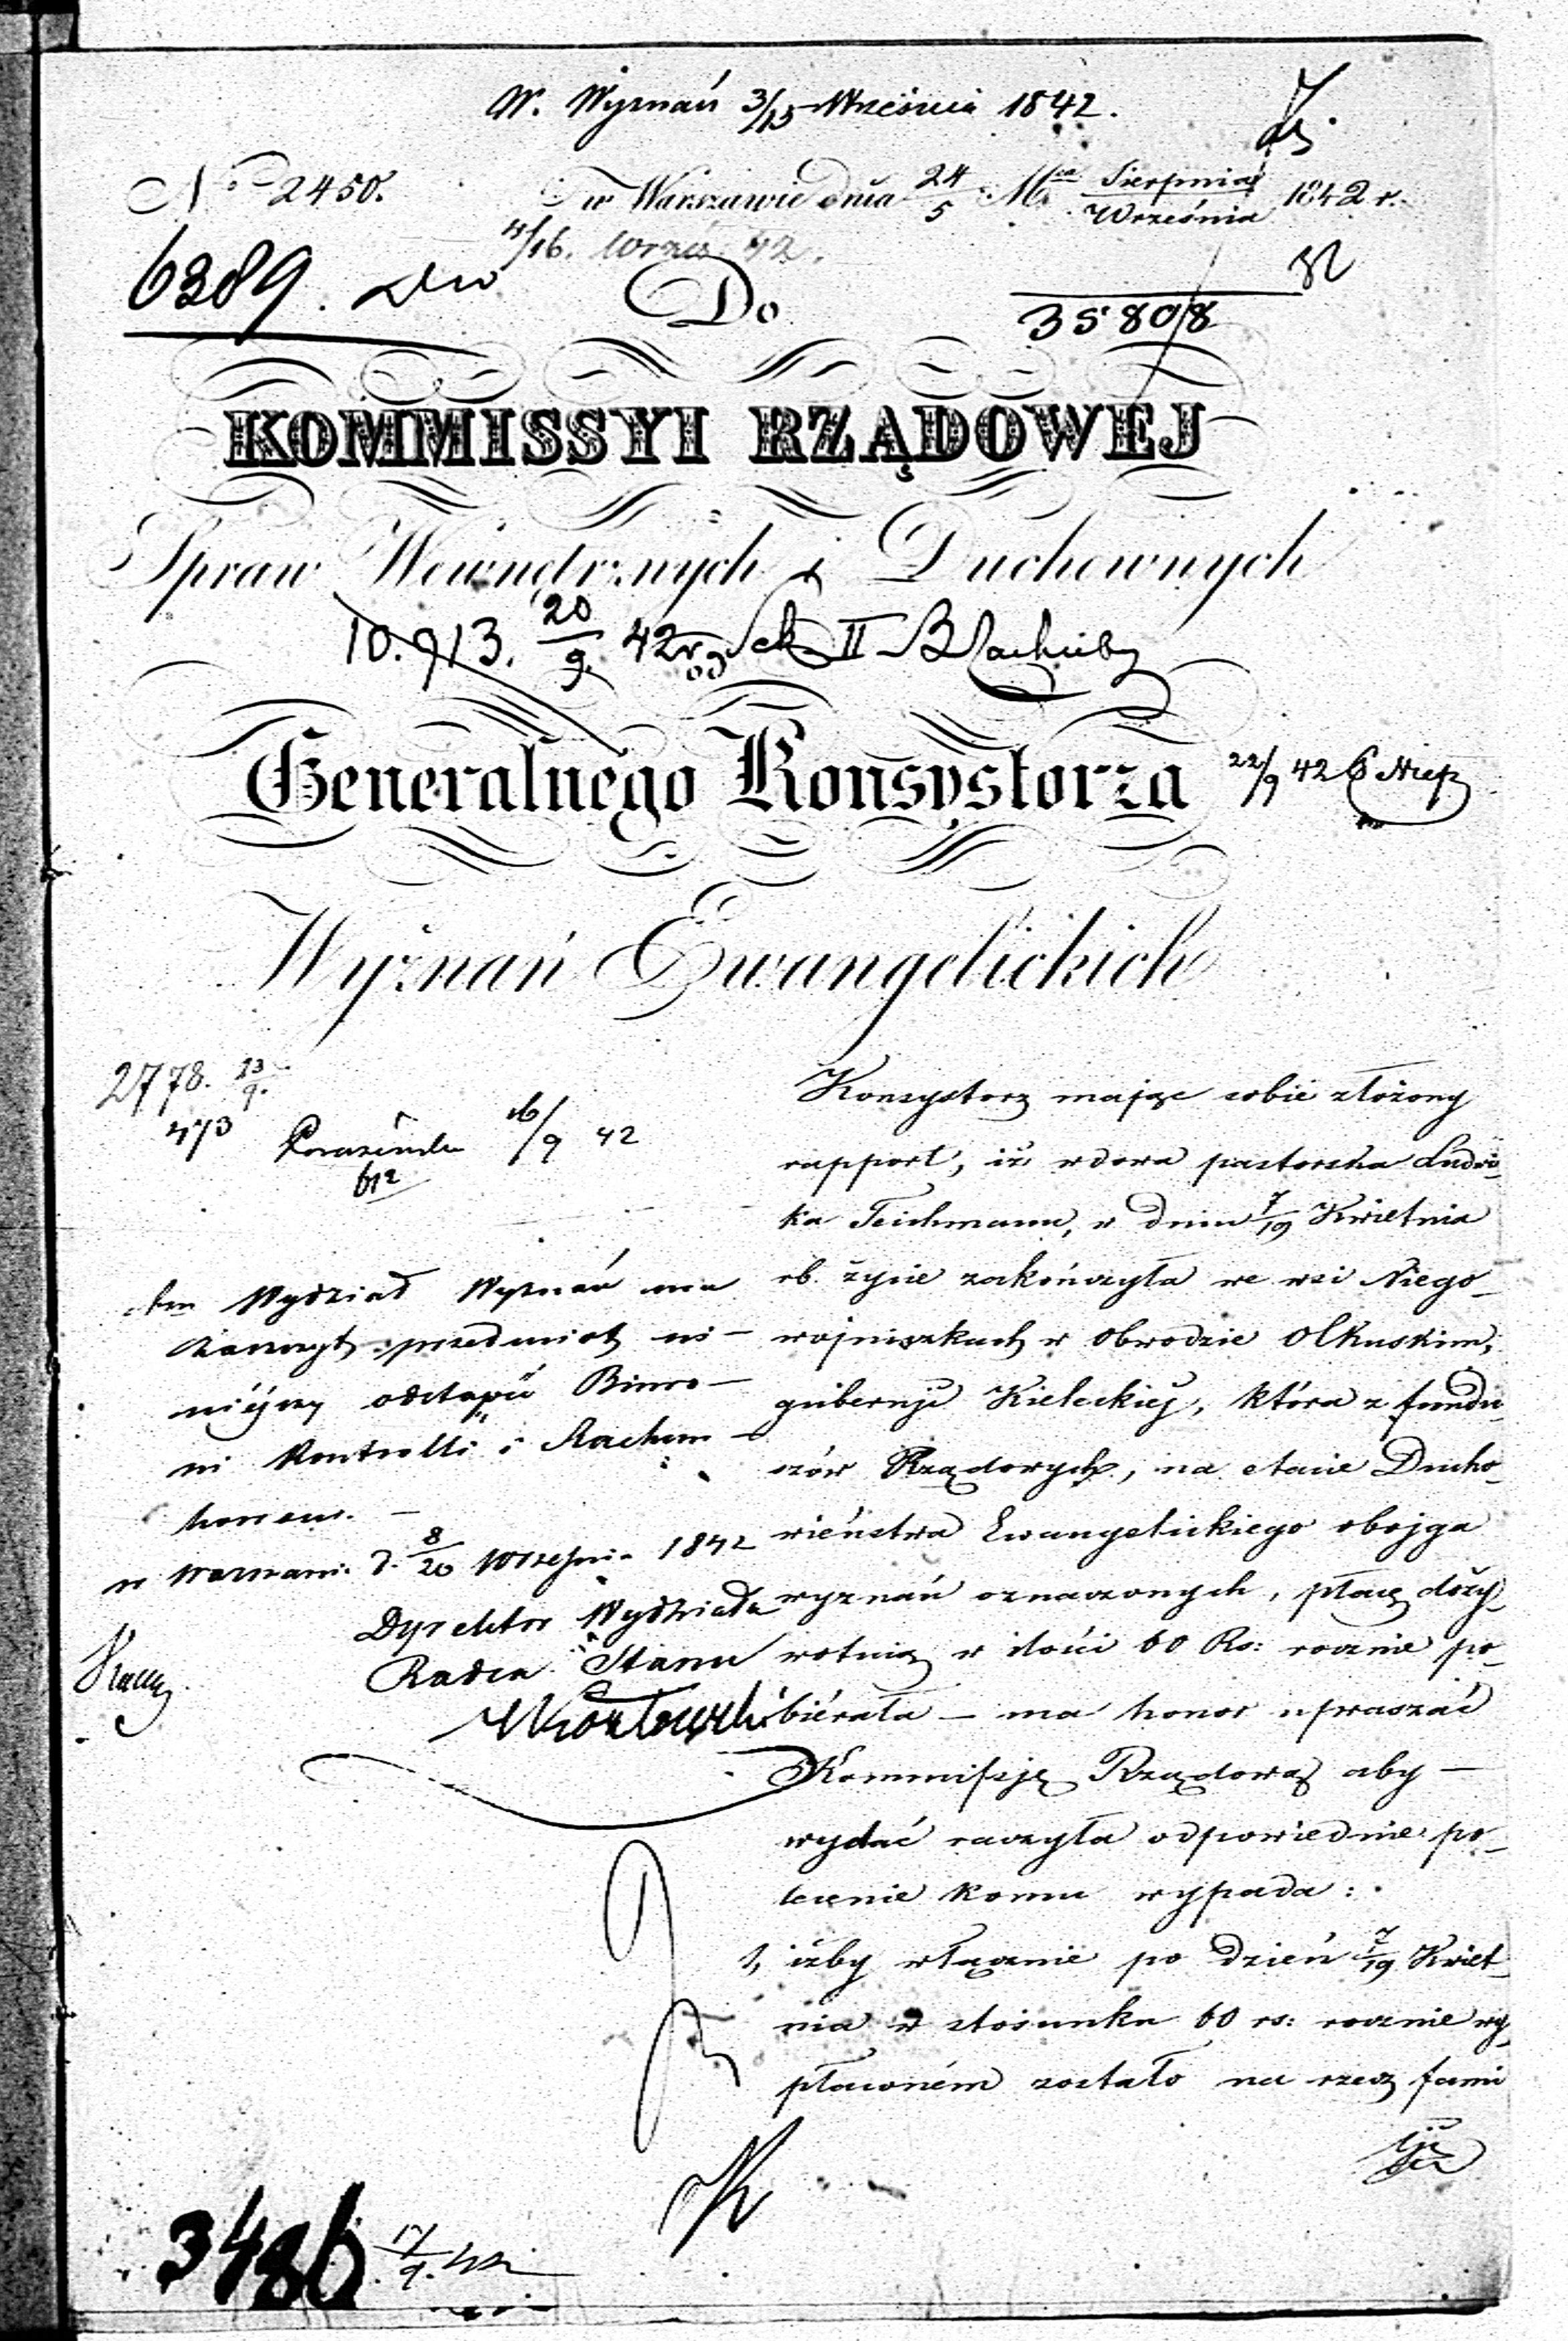 W. Wyznań 3/15 Września 1842.
No 2450. w Warszawie dnia 24/5 Mca Sierpnia/Września 1842 r.
4/16. Wrześ 42.
6389.
Do
35808
KOMMISSYI RZĄDOWEJ
Spraw Wewnętrznych i Duchownych
10.913. 20/9. 42 II
Generalnego Konsystorza
22/9 42
Wyznań Ewangelickich
2778. 23/9.
473 16/9 42
612
Konsystorz mając sobie złożony
rapport, iż wdowa pastorska Ludwi-
ka Teichmann, w dniu 7/19 Kwietnia
rb. życie zakończyła we wsi Niego-
wojniszkach w Obwodzie Olkuskim,
gubernji Kieleckiej, która z fundu-
szów Rządowych, na etacie Ducho-
wieństwa Ewangelickiego obojga
wyznań oznaczonych, płacę doży-
wotnią w ilości 60 Rs: rocznie po-
biérała – ma honor upraszać
Kommissję Rządową aby –
wydać raczyła odpowiednie po-
lecenie komu wypada:
1, iżby włącznie po dzień 7/19 Kwiet-
nia w stosunku 60 rs: rocznie wy-
płaconém zostało na rzecz fami
lji
Wydział Wyznań ma
zaszczyt przedmiot ni-
niejszy odstąpić Biuro-
wi Kontrolli i Rachun-
kowemu. –
w Warszawie d. 8/20 Września 1842
Dyrektor Wydziału
Radca Stanu
3486 17/9. 42